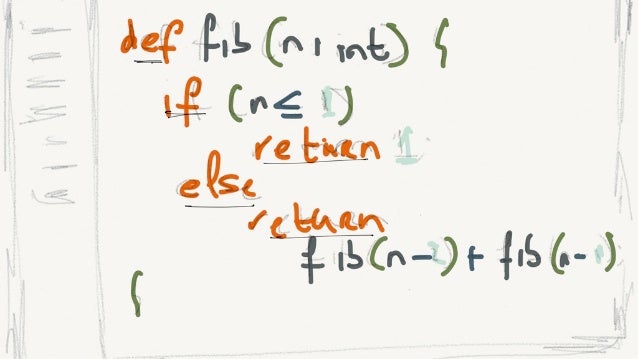 def fib (n : int) {
if (n ≤ 1)
return 1
else
return
fib(n-2) + fib(n-1)
{